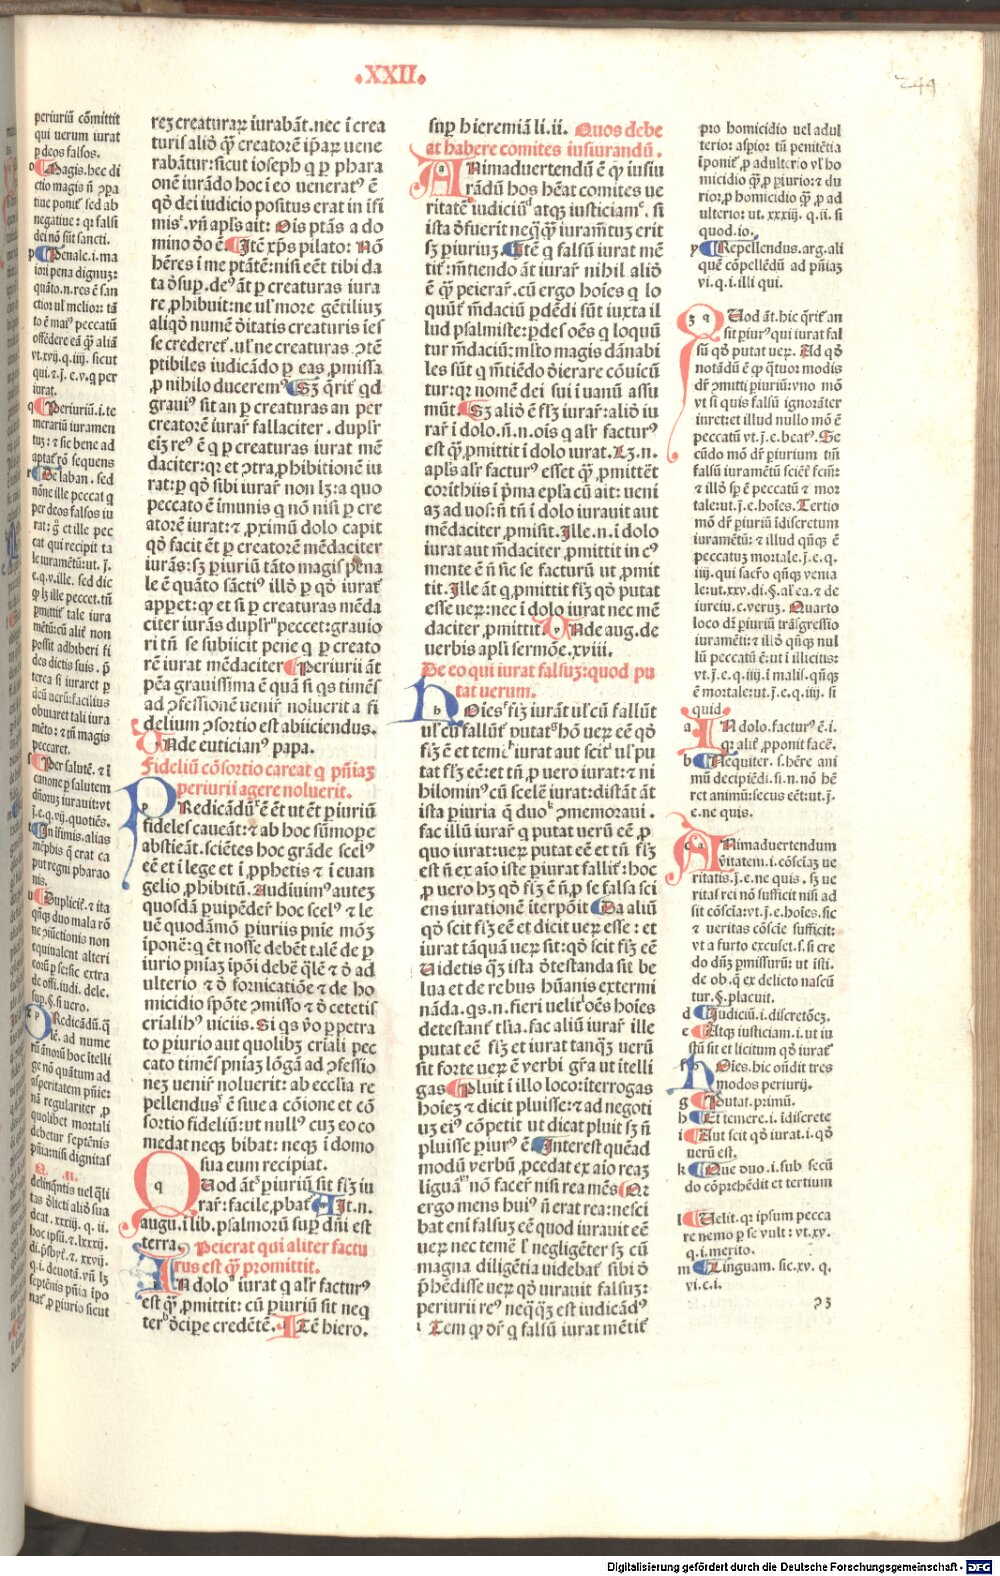 .XXII.
244
periuriū cōmittit
qui uerum iurat
p deos falsos.
Magis. hec di
ctio magis ñ ↄpa
tiue poniť sed ab
negatiue: qꝛ falsi
dei nō sūt sancti.
Penale. i. ma
iori pena dignuz:
quāto. n. res ē san
ctior ul' melior: tā
to ē mai⁹ peccatū
offēdere eā q̄ꝫ aliā
vt. xvij. q. iiij. sicut
qui. ⁊. j. e. v. q per
iurat.
Periuriū. i. te
merariū iuramen
tuz: ⁊ sic bene ad
aptať rō sequens
De laban. sed
nōne ille peccat q
per deos falsos iu
rat: ḡ et ille pec
cat qui recipit ta
le iuramētū: ut. j.
e. q. v. ille. sed dic
ꝙ lꝫ ille peccet. tñ
ꝑmittiť tale iura
mētū: cū aliť non
possit adhiberi fi
des dictis suis. ꝓ
terea si iuraret p
deū uerū: facilius
obuiaret tali iura
mēto: ⁊ tñ magis
peccaret.
Per salutē. ⁊ ī
canone p salutem
dñorum iurauit: vt
j. e. q. vij. quotiēs.
In īfimis. alias
mēphis q̄ erat ca
put regni pharao
nis.
Duplicit'. ⁊ ita
qñqꝫ duo mala rō
ne ↄiūctionis non
equiualent alteri
eorū p se: sic extra
de offi. iudi. dele.
sup. §. si uero.
Redicādū. q̄
le. ad nume
rū ānorū hoc ītelli
ge nō quātum ad
asperitatem pñie:
nā regulariter ꝓ
quolibet mortali
debetur septēnis
pñia: nisi dignitas
Q. .II.
delinq̄ntis uel q̄li
tas ðlicti aliō sua
deat. xxiij. q. ii.
hoc ipsū. ⁊. lxxxij.
di. psbyť. ⁊. xxvij.
q. i. deuotā. vñ lꝫ
septēnis pñia ipo
nať ꝓ piurio sicut
reꝫ creaturaꝝ iurabāt. nec ī crea
turis aliō q̄ꝫ creatorē ipaꝝ uene
rabātur: sicut ioseph q p phara
onē iurādo hoc ī eo ueneraᵗ⁹ ē
qō dei iudicio positus erat in īfi
mis. vñ apl's ait: Oīs ptās a do
mino ðo ē Itē xp̄s pilato: Nō
hēres ī me ptātē: nisi eēt tibi da
ta ðsuꝑ. de⁹ āt p creaturas iura
re ꝓhibuit: ne ul' more gētiliuꝫ
aliqō numē ðitatis creaturis īes
se crederet'. ul' ne creaturas ↄtē
ptibiles iudicādo p eas ꝓmissa
ꝓ nihilo ducerem⁹ Sꝫ q̄riť qd
graui⁹ sit an p creaturas an per
creatorē iurar' fallaciter. duplr'
eiꝫ re⁹ ē q p creaturas iurat mē
daciter: qꝛ et ↄtra ꝓhibitionē iu
rat: p qō sibi iurar' non lꝫ: a quo
peccato ē imunis q nō nisi p cre
atorē iurat: ⁊ ꝓximū dolo capit
qō facit ēt p creatorē mēdaciter
iurās: sꝫ piuriū tāto magis pena
le ē quāto sācti⁹ illō p qō iurať
appet: ꝙ et si p creaturas mēda
citer iurās duplr' peccet: grauio
ri tñ se subiicit pene q p creato
rē iurat mēdaciter Periurii āt
pēa grauissima ē quā si qs timēs
ad ↄfessionē uenir' noluerit a fi
delium ↄsortio est abiiciendus.
Nde euticianᵘˢ papa.
Fideliū cōsortio careat q pñiaꝫ
periurii agere noluerit.
Redicādū ē ēt ut ēt piuriū
fideles caueāt: ⁊ ab hoc sūmope
abstieāt. sciētes hoc grāde scel⁹
eē et ī lege et ī ꝓphetis ⁊ ī euan
gelio ꝓhibitū. Audiuim⁹ autez
quosdā puipēder' hoc scel⁹ ⁊ le
uē quodāmō piuriis pnie mōꝫ
īponē: q ēt nosse debēt talē de p
iurio pniaꝫ īpōi debē q̄lē ⁊ ð ad
ulterio ⁊ ð fornicatiōe ⁊ de ho
micidio spōte ↄmisso ⁊ ð cetetis
crialib⁹ uiciis. Si qs v̄o ppetra
to piurio aut quolibꝫ criāli pec
cato timēs pniaꝫ lōgā ad ↄfessio
neꝫ uenir' noluerit: ab ecclīa re
pellendus ē siue a cōione et cō
sortio fideliū: ut null⁹ cuꝫ eo co
medat neqꝫ bibat: neqꝫ ī domo
sua eum recipiat.
Uod āt ꝫ piuriū sit fiꝫ iu
rar': facile ꝓbať It. n.
augu. ī lib. psalmorū sup dñi est
terra. Peierat qui aliter factu
rus est q̄ꝫ promittit.
IN dolo iurat q alr' factur⁹
est q̄ꝫ ꝓmittit: cū piuriū sit neq
ter ðcipe credētē. Itē hiero.
sup hieremiā li. ii. Quos debe
at habere comites iusiurandū.
ANimaduertendū ē ꝙ iusiu
rādū hos hēat comites ue
ritatē iudiciū atqꝫ iusticiam. si
ista ðfuerit neq̄q̄ꝫ iuramētuꝫ erit
sꝫ piuriuꝫ. Itē q falsū iurat mē
tiť: mētiendo āt iurar' nihil aliō
ē q̄ꝫ peierar'. cū ergo hoīes q lo
quūť mēdaciū pdēdi sūt iuxta il
lud psalmiste: pdes oēs q loquū
tur mēdaciū: mlto magis dānabi
les sūt q mētiēdo ðierare cōuicū
tur: qꝛ nomē dei sui ī uanū assu
mūt. Sꝫ aliō ē fl'sꝫ iurar': aliō iu
rar' ī dolo. ñ. n. oīs q alr' factur⁹
est q̄ꝫ ꝓmittit ī dolo iurat. Lꝫ. n.
apl's alr' factur⁹ esset q̄ꝫ ꝓmittēt
corīthiis ī pma epl'a cū ait: ueni
aꝫ ad uos: ñ tñ ī dolo iurauit aut
mēdaciter ꝓmisit. Ille. n. ī dolo
iurat aut mēdaciter ꝓmittit in c⁹
mente ē ñ sic se facturū ut ꝓmit
tit. Ille āt q ꝓmittit fl'sꝫ qō putat
esse ueꝝ: nec ī dolo iurat nec mē
daciter ꝓmittit. Nde aug. de
uerbis apl'i sermōe. xviii.
De eo qui iurat falsuꝫ: quod pu
tat uerum.
hOies fl'sꝫ iurāt ul' cū fallūt
ul' cū fallūť putat hō ueꝝ eē qō
fl'sꝫ ē et teme iurat aut sciť ul' pu
tat fl'sꝫ eē: et tñ ꝓ uero iurat: ⁊ ni
hilomin⁹ cū scelē iurat: distāt āt
ista piuria q̄ duo ↄmemoraui.
fac illū iurar' q putat uerū eē ꝓ
quo iurat: ueꝝ putat eē et tñ fl'sꝫ
est ñ ex aīo iste piurat fallit: hoc
ꝓ uero hꝫ qō fl'sꝫ ē ñ ꝓ se falsa sci
ens iurationē iterpōit Da aliū
qō scit fl'sꝫ eē et dicit ueꝝ esse: et
iurat tāquā ueꝝ sit: qō scit fl'sꝫ eē
Uidetis q̄ꝫ ista ðtestanda sit be
lua et de rebus hūanis extermi
nāda. qs. n. fieri uelit oēs hoīes
detestanť tl'ia. fac aliū iurar' ille
putat eē fl'sꝫ et iurat tanq̄ꝫ uerū
sit forte ueꝝ ē verbi gr̄a ut itelli
gas Pluit ī illo loco: īterrogas
hoieꝫ ⁊ dicit pluisse: ⁊ ad negoti
uꝫ ei⁹ cōpetit ut dicat pluit sꝫ ñ
pluisse piur⁹ ē. Interest quēad
modū verbū ꝓcedat ex aīo reaꝫ
liguā nō facer' nisi rea mēs Qꝛ
ergo mens hui⁹ ñ erat rea: nesci
bat enī falsuꝫ eē quod iurauit eē
ueꝝ nec temē l' negligēter sꝫ cū
magna diligētia uidebať sibi ð
phēdisse ueꝝ qō iurauit falsuꝫ:
periurii re⁹ neq̄q̄ꝫ est iudicād⁹
ITem ꝙ dr' q falsū iurat mētiť
pro homicidio uel adul
terio: aspior tñ penitētia
īponiť ꝓ adulterio ul' ho
micidio q̄ꝫ ꝓ piurio: ⁊ du
rior ꝓ homicidio q̄ꝫ ꝓ ad
ulterio: ut. xxxiij. q. ii. si
quod. io.
y Repellendus. arg. ali
quē cōpellēdū ad pñiaꝫ
vi. q. i. illi qui.
Uod āt. hic q̄riť an
sit piur⁹ qui iurat fal
sū qō putat ueꝝ. Ad qō
notādū ē ꝙ q̄tuor modis
dr' ↄmitti piuriū: vno mō
vt si quis falsū ignorāter
iuret: et illud nullo mō ē
peccatū vt. j. e. beat⁹. Se
cūdo mō dr' piurium tñ
falsū iuramētū sciēť fcm̄:
⁊ illō sp ē peccatū ⁊ mor
tale: ut. j. e. hoies. Tertio
mō dr' piuriū īdiscretum
iuramētū: ⁊ illud qñqꝫ ē
peccatuꝫ mortale. j. e. q.
iiij. qui sacro qñqꝫ venia
le: ut. xxv. di. §. al' ea. ⁊ de
iureiu. c. veruꝫ. Quarto
loco dr' piuriū trāsgressio
iuramēti: ⁊ illō qñqꝫ nul
lū peccatū ē: ut ī illicitis:
vt. j. e. q. iiij. ī malis. qñqꝫ
ē mortale: ut. j. e. q. iiij. si
quid.
a IN dolo. factur⁹ ē. i.
qꝛ aliť ꝓponit facē.
b Nequiter. s. hēre ani
mū decipiēdi. si. n. nō hē
ret animū: secus eēt: ut. j.
e. ne quis.
ANimaduertendum
v̄itatem. i. cōsciaꝫ ue
ritatis. j. e. ne quis. sꝫ ue
ritas rei nō sufficit nisi ad
sit cōscia: vt. j. e. hoies. sic
⁊ ueritas cōscie sufficit:
vt a furto excuseť. s. si cre
do dñꝫ pmissurū: ut isti.
de ob. q̄ ex delicto nascū
tur. §. placuit.
d Iudiciū. i. discretōeꝫ.
e Atqꝫ iusticiam. i. ut iu
stū sit et licitum qō iurať
hOies. hic oñdit tres
modos periurij.
g Putat. primū.
h Et temere. i. īdiscrete
i Aut scit qō iurat. i. qō
uerū est.
k Que duo. i. sub secū
do cōprehēdit et tertium
l Uelit. qꝛ ipsum pecca
re nemo p se vult: vt. xv.
q. i. merito.
m Linguam. sic. xv. q.
vi. c. i.
ꝓ 3
Digitalisierung gefördert durch die Deutsche Forschungsgemeinschaft - DFG